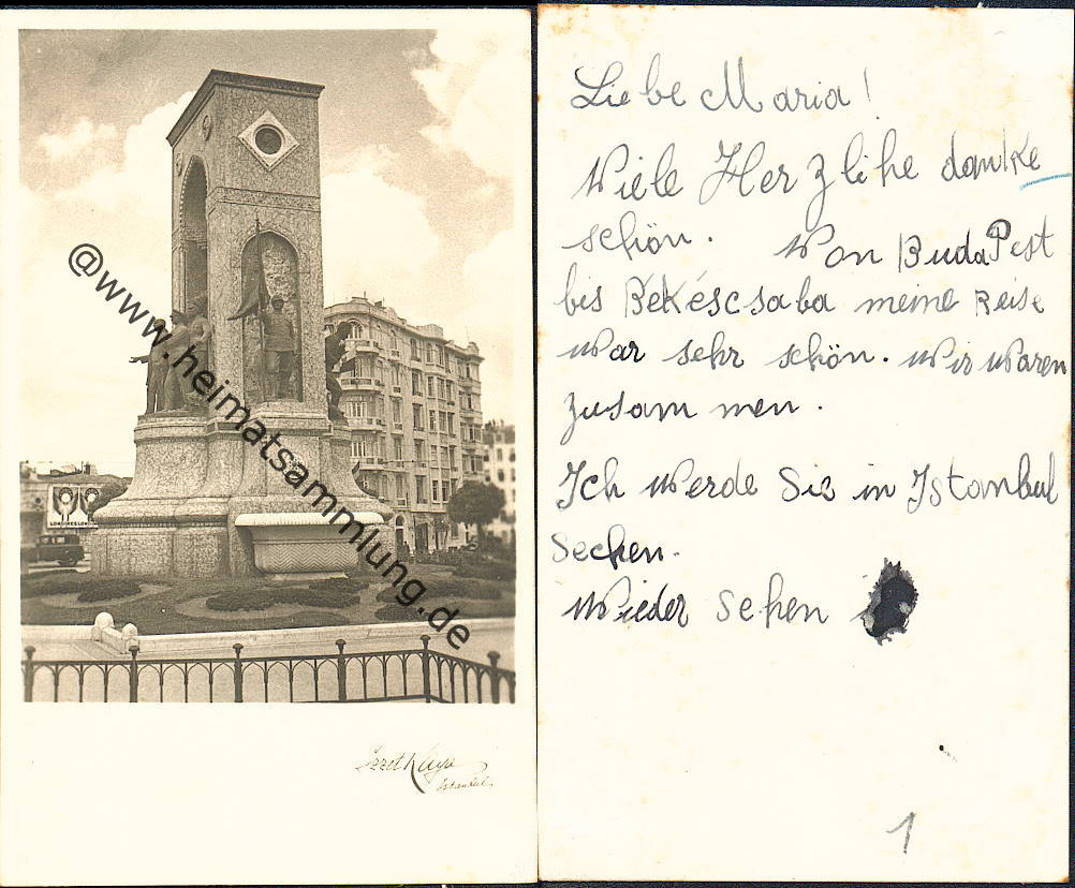 @www.heimatsammlung.de
Izzet Kaya
Istanbul
Liebe Maria!
Viele Herzlihe danke
schön. Von BudaPest
bis Békéscsaba meine Reise
war sehr schön. Wir waren
zusammen.
Ich werde Sie in Istanbul
sechen.
Wieder sehen
1